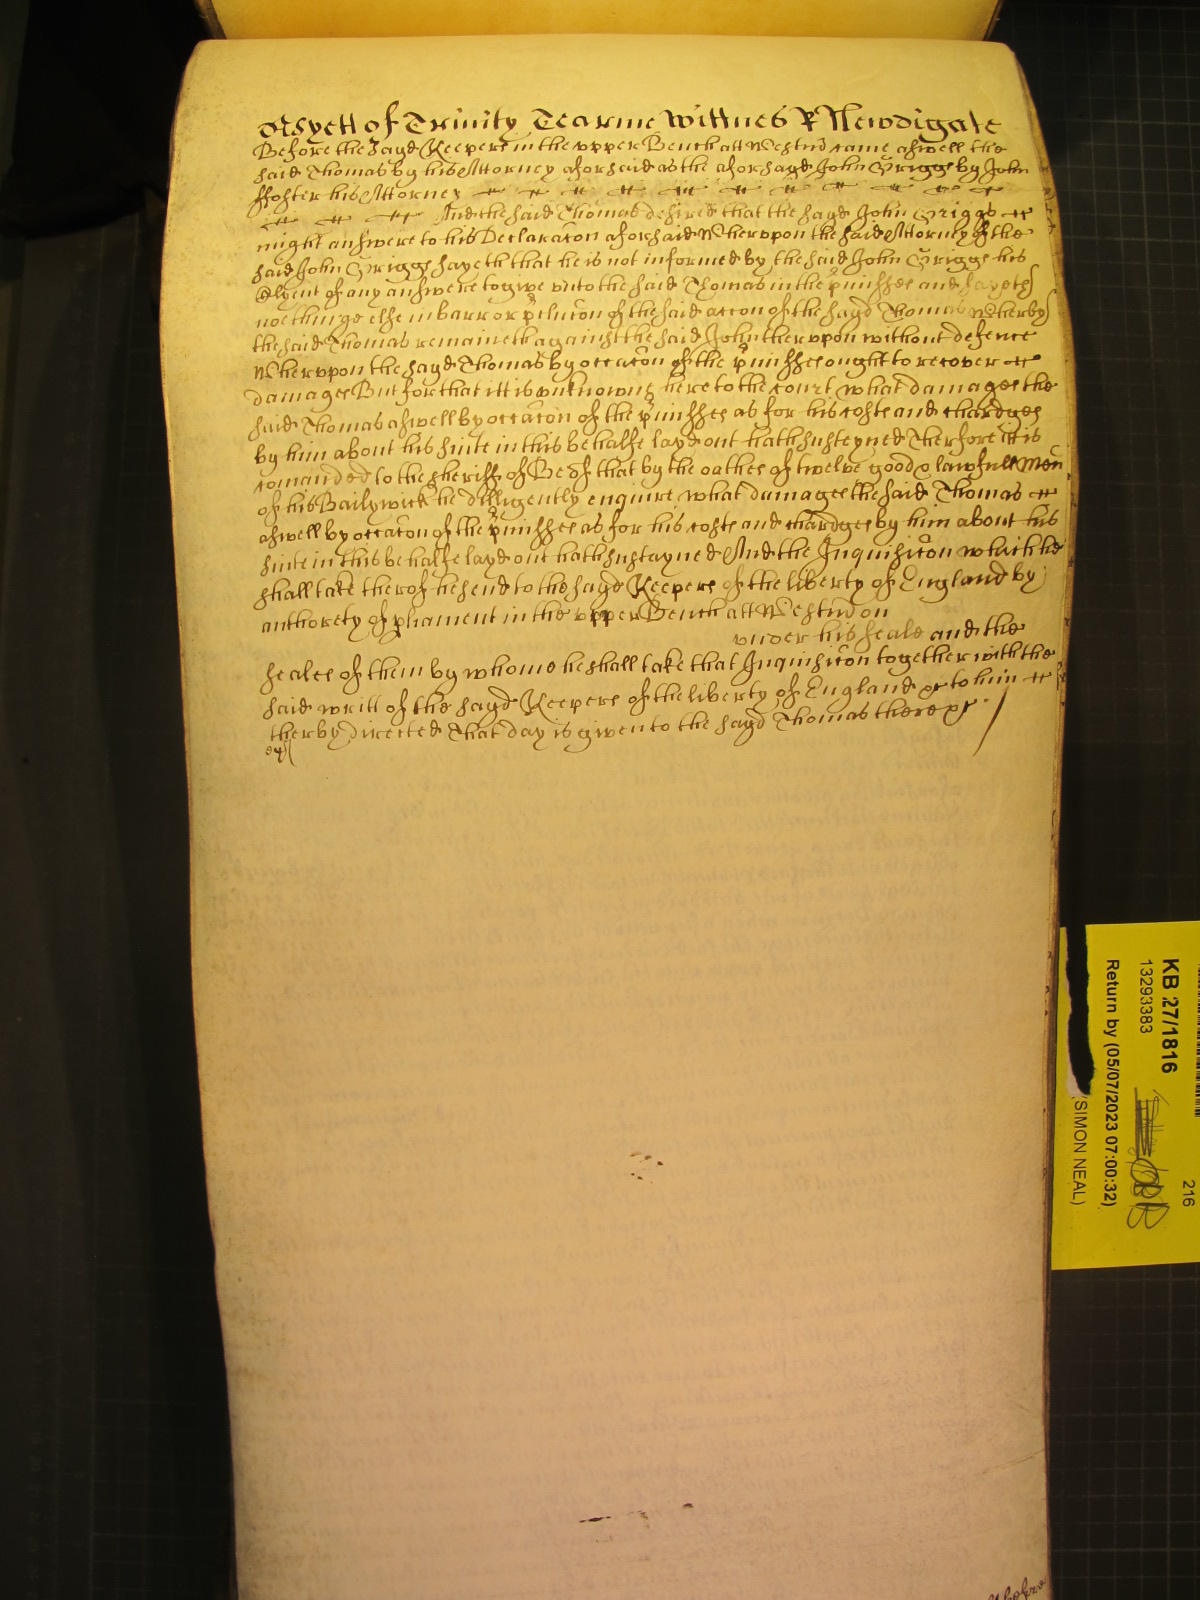 As yett of Trinity Tearme Wittnes R Newdigate
Before the sayd Keepers in the upper Bench att Westmr came aswell the
said Thomas by his Attorney aforsaid as the aforsayd John Griggs by John
ffoster his Attorney
And the said Thomas desired that the sayd John Griggs
might answere to his Declaracon aforsaid Wherupon the said Attorney of the
said John Griggs sayeth that he is not informed by the said John Griggs his
Clyent of any answere to give unto the said Thomas in the pmisses and sayeth
noethinge else in barr or pclucon of the said accon of the sayd Thomas Wherby
the said Thomas remaineth against the said John therupon without defence
Wherupon the sayd Thomas by occacon of the pmisses ought to recover
damages But for that itt is unknowne here to the court what damages the
said Thomas aswell by occacon of the pmisses as for his costs and chardges
by him about his suite in this behalfe layd out hath susteyned Therfore it is
comanded to the sheriffe of Bedf that by the oathes of twelve good & lawfull men
of his Bailywick he dilligently enquire what damages the said Thomas
aswell by occacon of the pmisses as for his costs and chardges by him about his
suite in this behalfe layd out hath sustayned And the Inquisicon which he
shall take therof he send to the sayd Keepers of the liberty of England by
authorety of pliament in the upper Bench att Westmr on
under his seale and the
seales of them by whome he shall take that Inquisicon together with the
said writt of the sayd Keepers of the liberty of England &c to him
therby directed That day is given to the sayd Thomas there &c
KB 27/1816
13293383
Return by (05/07/2023 07:00:32)
(SIMON NEAL)
216